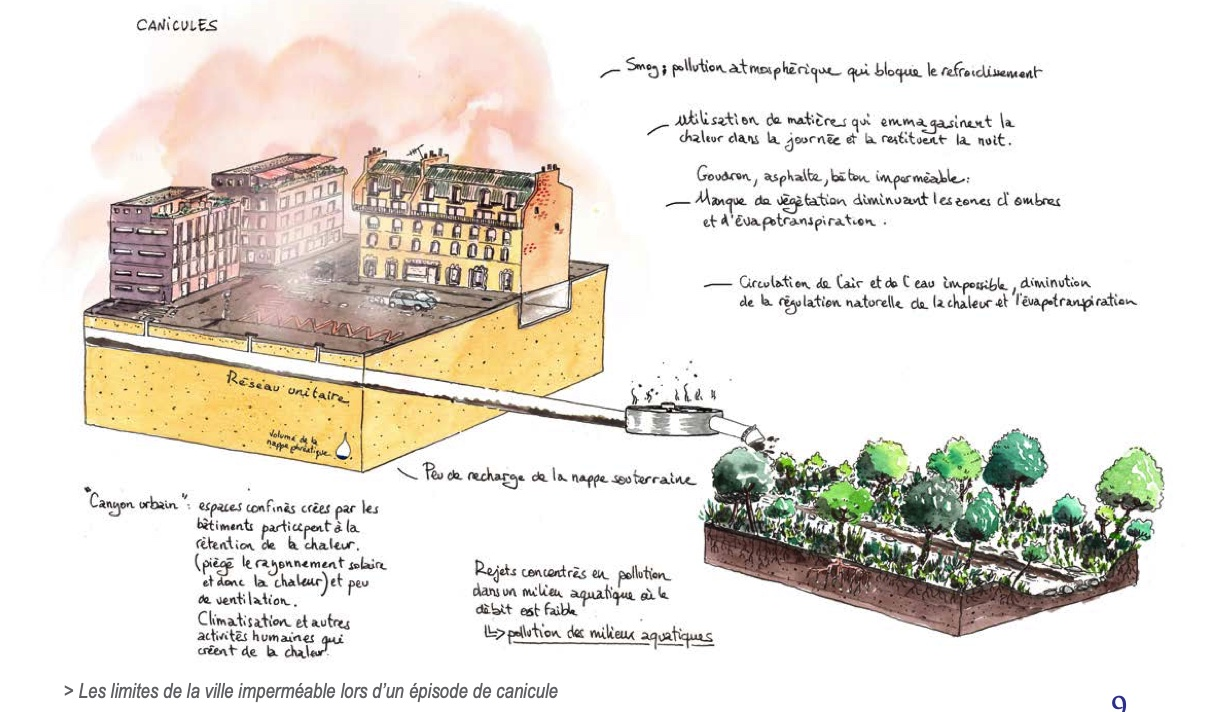 CANICULES
Smog ; pollution atmosphérique qui bloque le refroidissement
utilisation de matières qui emmagasinent la
chaleur dans la journée et la restituent la nuit.
Goudron, asphalte, béton imperméable :
Manque de végétation diminuant les zones d'ombres
et d'évapotranspiration.
Circulation de l'air et de l'eau impossible, diminution
de la régulation naturelle de la chaleur et l'évapotranspiration
Réseau unitaire
volume de la
nappe phréatique
Peu de recharge de la nappe souterraine
"Canyon urbain" : espaces confinés crées par les
bâtiments participent à la
rétention de la chaleur.
(piégé le rayonnement solaire
et donc la chaleur) et peu
de ventilation.
Climatisation et autres
activités humaines qui
créent de la chaleur.
Rejets concentrés en pollution
dans un milieu aquatique où le
débit est faible
↳> pollution des milieux aquatiques
> Les limites de la ville imperméable lors d'un épisode de canicule
9